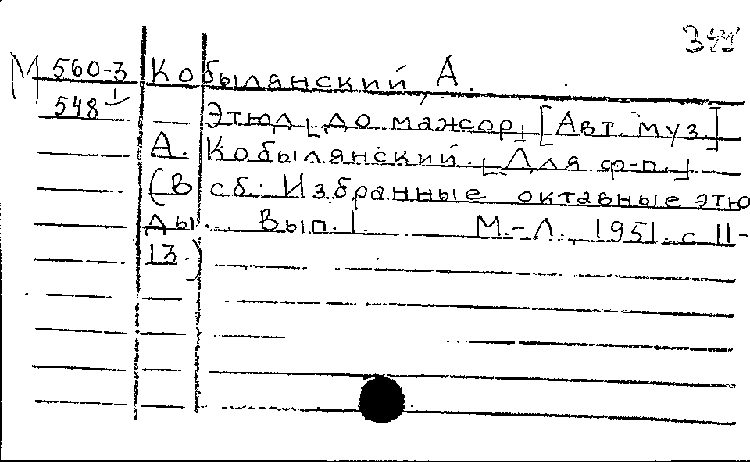 М 560-3 Кобылянский, А.
548 Этюд [до мажор] [Авт. муз.]
А. Кобылянский. [Для ф-п.]
(В сб: Избранные октавные этю
ды. Вып. 1. М.-Л., 1951. с 11-
13.)